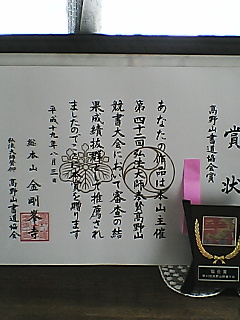 賞状
高野山書道協会賞
あなたの作品は本山主催
第四十二回弘法大師奉賛高野山
競書大会において審査の結
果成績抜群として推薦され
ましたのでここに本賞を贈ります
平成十九年八月三日
総本山 金剛峯寺
高野山書道協会
協会賞